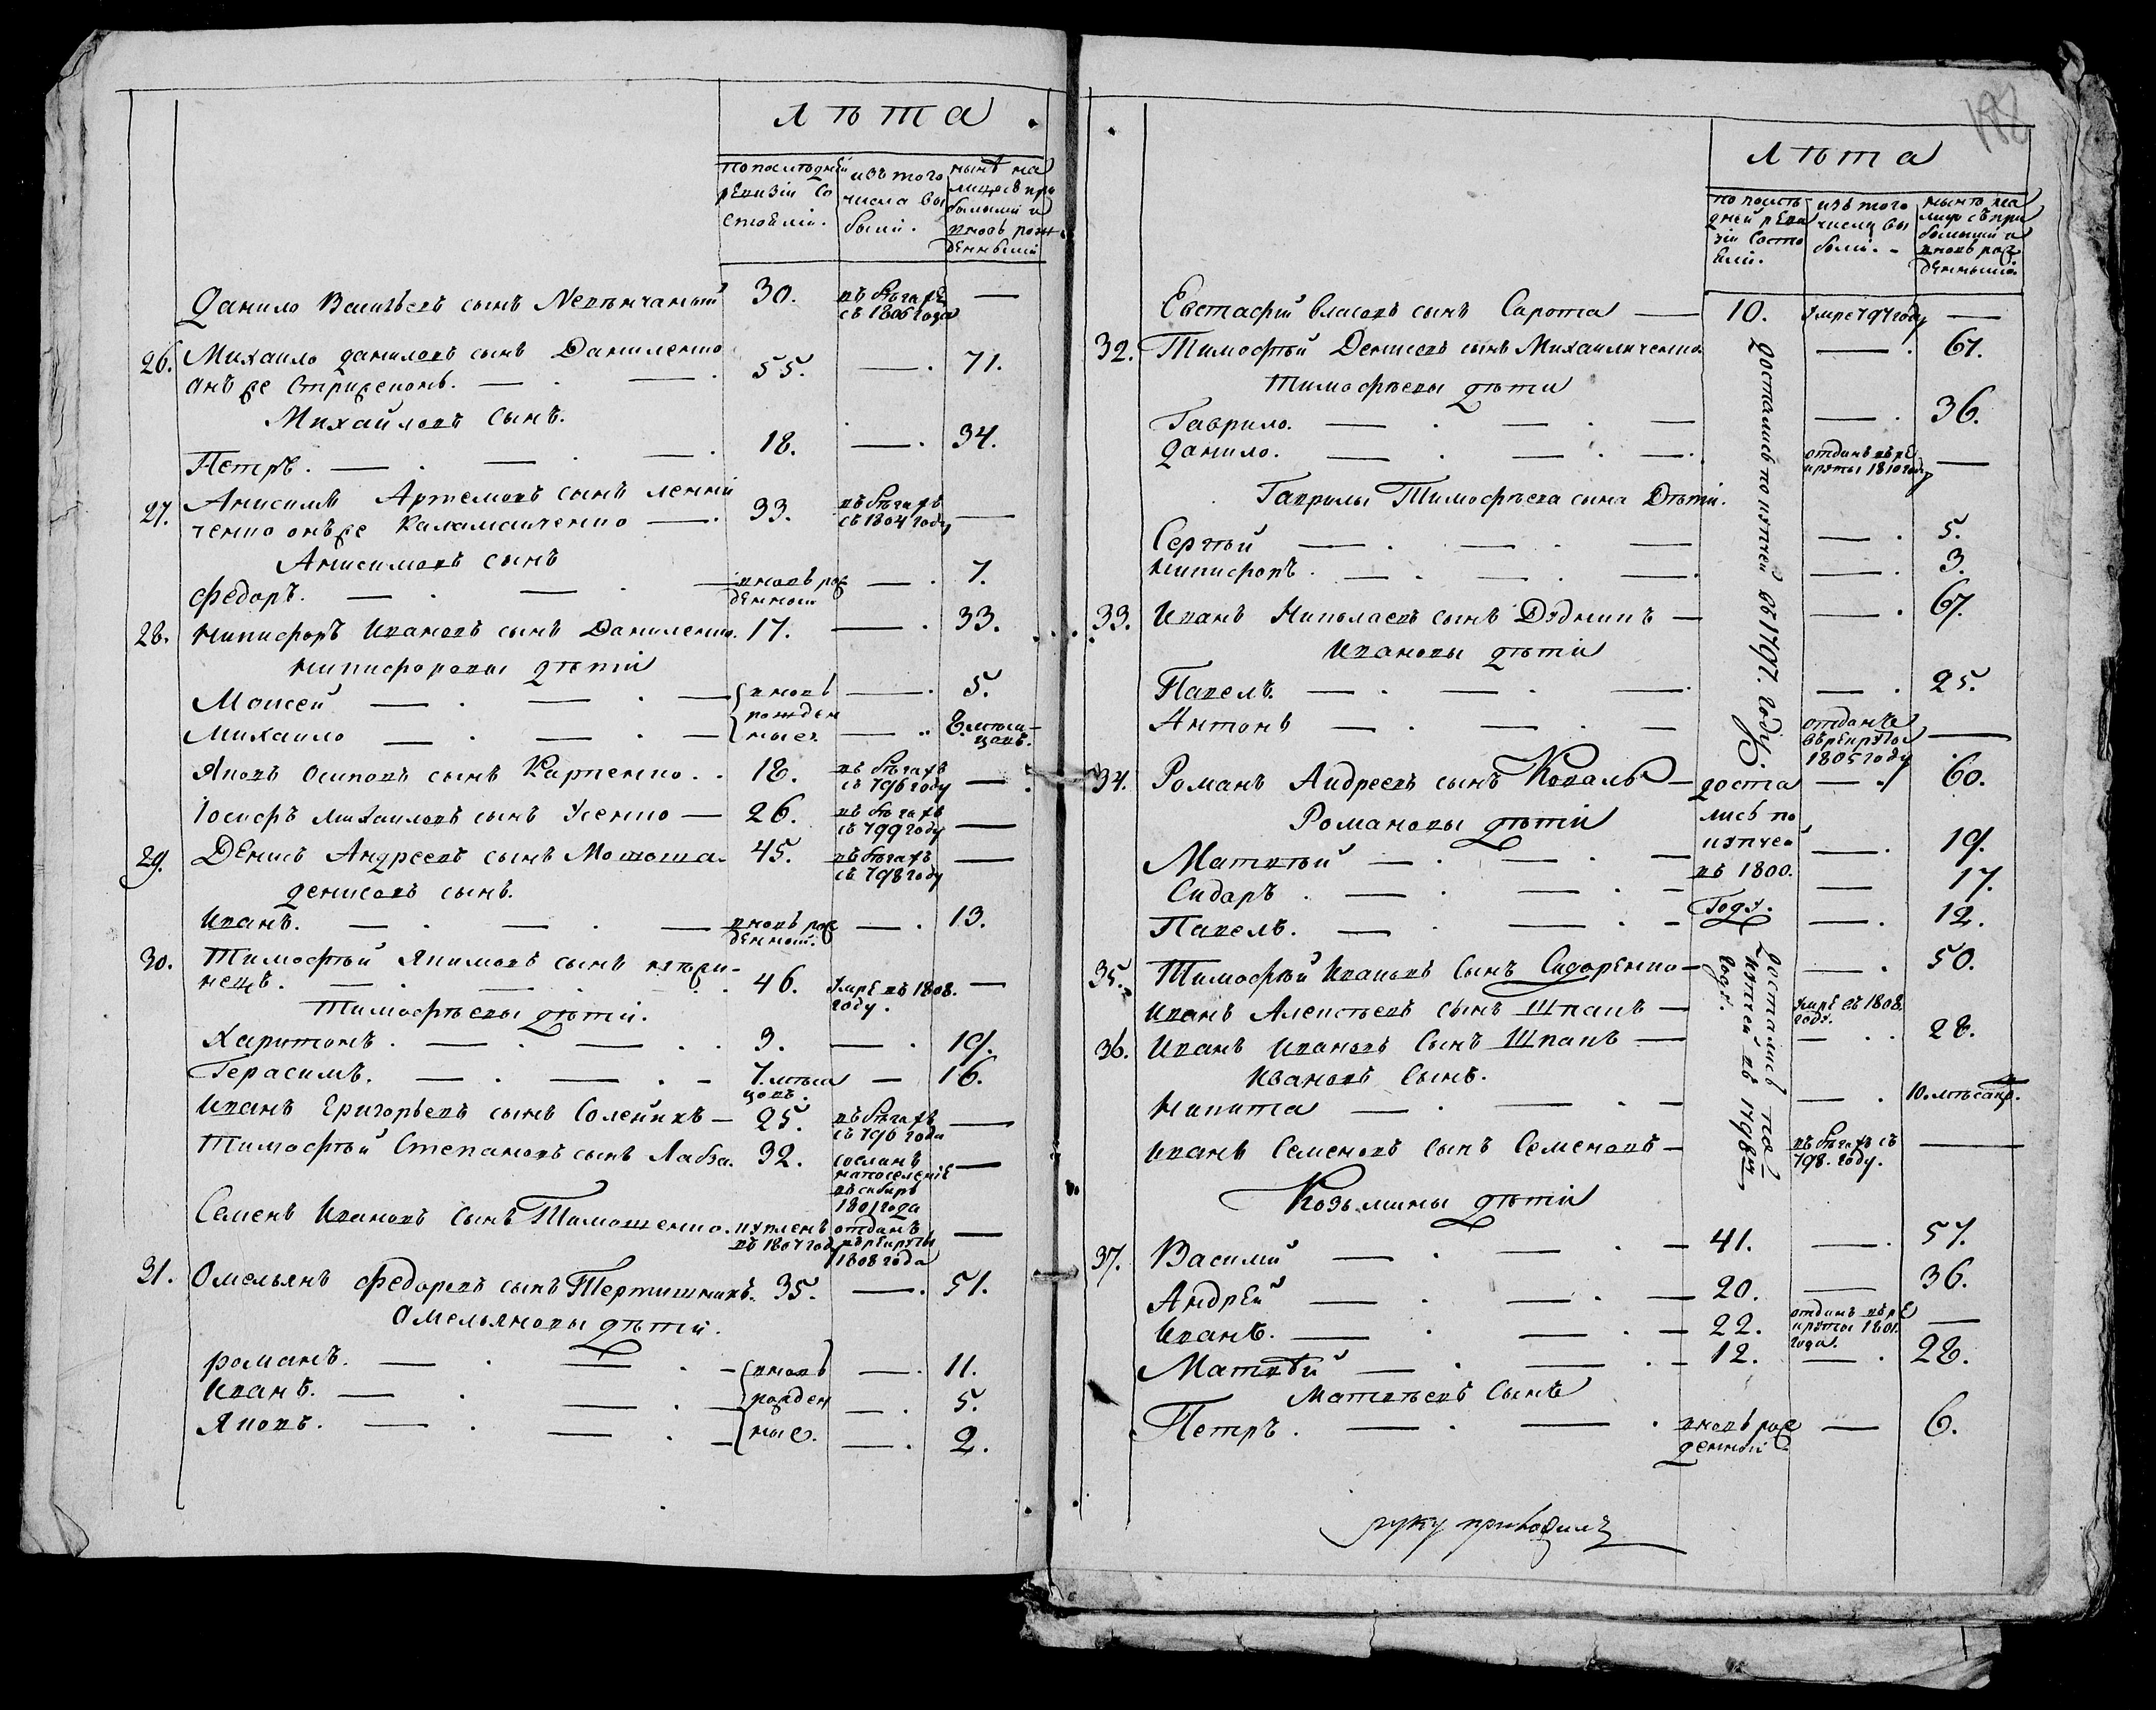 Лѣта
по последней ревизіи состояли.
изъ того числа выбыли.
нынѣ на лицо съ прибылыми и вновь рожденными
Данило Васильевъ сынъ Невѣнчаный 30. въ бѣгахъ съ 1806 года —
26. Михаило Даниловъ сынъ Даниленко
онъ же Стриженокъ. — 55. — 71.
Михайловъ сынъ.
Петръ. — 18. — 34.
27. Анисимъ Артемовъ сынъ
ченко онъ же — 33. въ бѣгахъ съ 1804 году —
Анисимовъ сынъ
Федоръ. — вновь рожденной — 7.
28. Никифоръ Ивановъ сынъ Даниленко. 17. — 33.
Никифоровы дѣти
Моисей — вновь — 5.
Михаило — рожденные. — 8. мѣсяцовъ.
Яковъ Осиповъ сынъ Карпенко. 18. въ бѣгахъ съ 796 году —
Іосифъ Михаиловъ сынъ Усенко — 26. въ бѣгахъ съ 799 году —
29. Денисъ Андреевъ сынъ Мотоша. 45. въ бѣгахъ съ 798 году —
Денисовъ сынъ.
Иванъ. — вновь рожденной. — 13.
30. Тимофѣй Якимовъ сынъ
нецъ. — 46. умре въ 1808. году. —
Тимофѣевы дѣти.
Харитонъ. — 3. — 19.
Герасимъ. — 7. мѣсяцовъ. — 16.
Иванъ Григорьевъ сынъ Солейникъ — 25. въ бѣгахъ съ 796 года —
Тимофѣй Степановъ сынъ Лабза. 32. сосланъ на поселеніе въ сибирь 1801 года —
Семенъ Ивановъ сынъ Тимошенко. купленъ въ 1807 году отданъ въ рекруты 1808 года —
31. Омельянъ Федоровъ сынъ Тертишникъ. 35. — 51.
Омельяновы дѣти.
Романъ. — вновь — 11.
Иванъ. — рожден — 5.
Яковъ. — ные. — 2.
188
Лѣта
по последней ревизіи состояли.
изъ того числа выбыли. -
нынѣ на лицо съ прибылыми и вновь рожденными
Евстафій Власовъ сынъ Сирота — 10. умре 797 году —
32. Тимофѣй Денисовъ сынъ Михаиличенко — 67.
Тимофѣевы дѣти
Гаврило. — 36.
Данило. — отданъ въ рекруты 1810 году —
Гаврилы Тимофѣева сына Дѣти.
Сергѣй — 5.
Никифоръ. — 3.
33. Иванъ Николаевъ сынъ Дудникъ — 67.
Ивановы дѣти
Павелъ. — 25.
Антонъ — отданъ въ рекруты 1805 году —
достались по купчей въ 1797. году.
34. Романъ Андреевъ сынъ Коваль — достались по купчей въ 1800. Году. — 60.
Романовы дѣти
Матвѣй — 19.
Сидоръ. — 17.
Павелъ. — 12.
35. Тимофѣй Ивановъ Сынъ Сидоренко — 50.
Иванъ Алексѣевъ сынъ Шпакъ — умре въ 1808. году.
36. Иванъ Ивановъ Сынъ Шпакъ — 28.
Ивановъ Сынъ.
Никита — 10. мѣсацо.
достались по купчей въ 1798м году.
Иванъ Семеновъ сынъ Семеновъ — въ бѣгахъ съ 798. году. —
Козьмины дѣти
37. Василій — 41. — 57.
Андрей — 20. — 36.
Иванъ. — 22. отданъ въ рекруты 1801. года. —
Матвѣй — 12. — 28.
Матвѣевъ Сынъ
Петръ. — вновь рожденной — 6.
руку приложилъ